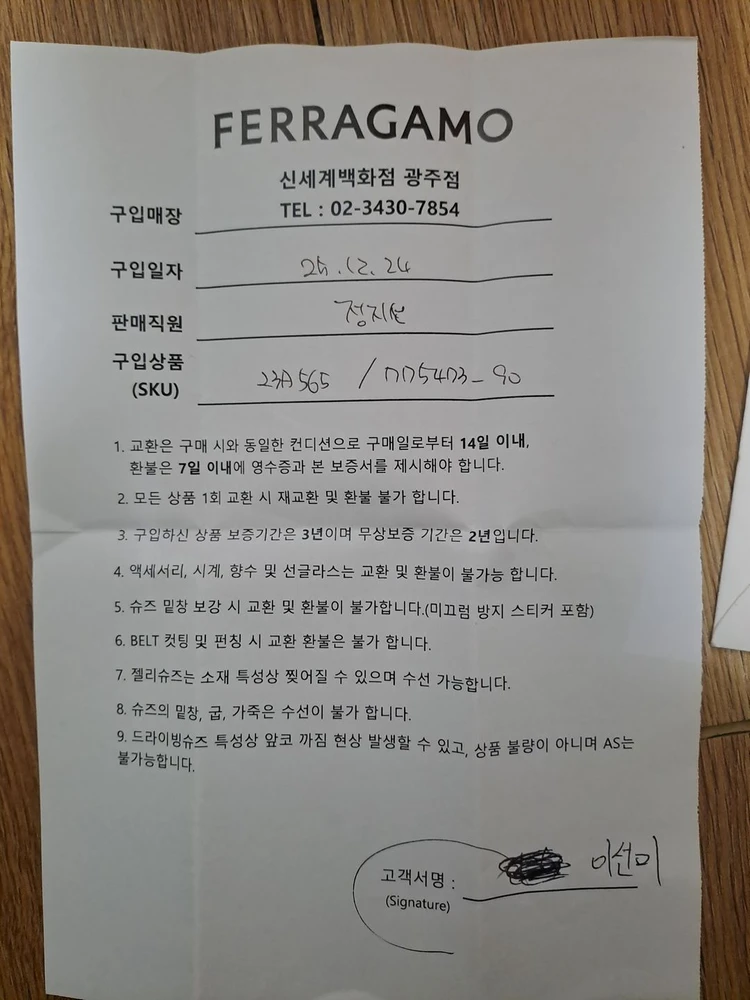 FERRAGAMO
신세계백화점 광주점
구입매장 TEL : 02-3430-7854
구입일자 25.12.24
판매직원
구입상품 23A565 /
(SKU)
1. 교환은 구매 시와 동일한 컨디션으로 구매일로부터 14일 이내,
환불은 7일 이내에 영수증과 본 보증서를 제시해야 합니다.
2. 모든 상품 1회 교환 시 재교환 및 환불 불가 합니다.
3. 구입하신 상품 보증기간은 3년이며 무상보증 기간은 2년입니다.
4. 액세서리, 시계, 향수 및 선글라스는 교환 및 환불이 불가능 합니다.
5. 슈즈 밑창 보강 시 교환 및 환불이 불가합니다.(미끄럼 방지 스티커 포함)
6. BELT 컷팅 및 펀칭 시 교환 환불은 불가 합니다.
7. 젤리슈즈는 소재 특성상 찢어질 수 있으며 수선 가능합니다.
8. 슈즈의 밑창, 굽, 가죽은 수선이 불가 합니다.
9. 드라이빙슈즈 특성상 앞코 까짐 현상 발생할 수 있고, 상품 불량이 아니며 AS는
불가능합니다.
고객서명 : 이선미
(Signature)